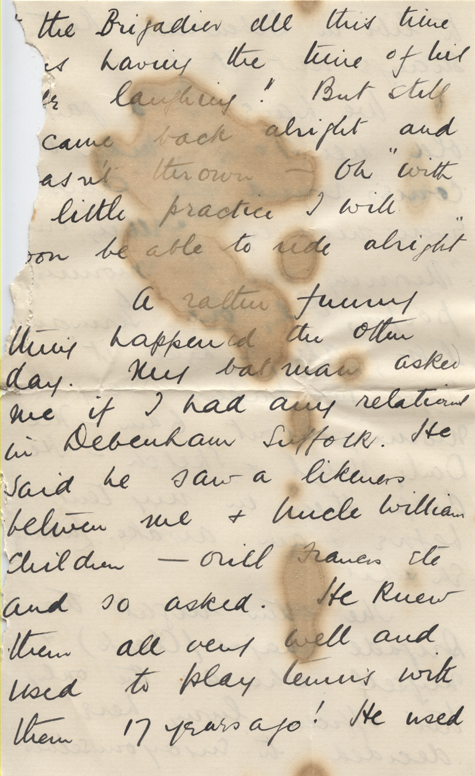 " the Brigadier all this time
as having the time of his
fe laughing"! But still
came back alright and
asn't thrown — Oh "with
little practice I will
oon be able to ride alright"
A rather funny
thing happened the other
day. My batman asked
me if I had any relations
in Debenham Suffolk. He
said he saw a likeness
between me & Uncle William
Children — Frances etc
and so asked. He knew
them all very well and
used to play tennis with
them 17 years ago! He used